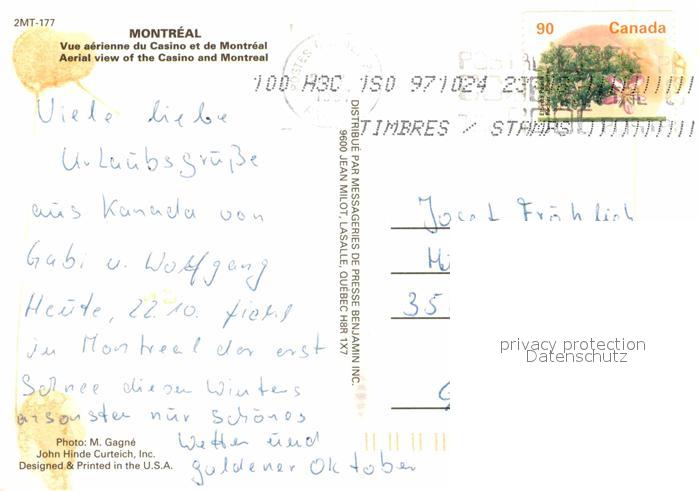 2MT-177
MONTRÉAL
Vue aérienne du Casino et de Montréal
Aerial view of the Casino and Montreal
90 Canada
100 H3C 1S0 971024 23
TIMBRES / STAMPS
Viele liebe
Urlaubsgrüße
aus Kanada von
Gabi u. Wolfgang
Heute, 22.10. fiel
in Montreal der erst
Schnee dieses Winters
ansonsten nur schönes
Wetter und
goldener Oktober
Photo: M. Gagné
John Hinde Curteich, Inc.
Designed & Printed in the U.S.A.
DISTRIBUÉ PAR MESSAGERIES DE PRESSE BENJAMIN INC.
9600 JEAN MILOT, LASALLE, QUÉBEC H8R 1X7
Fröhlich
35
privacy protection
Datenschutz